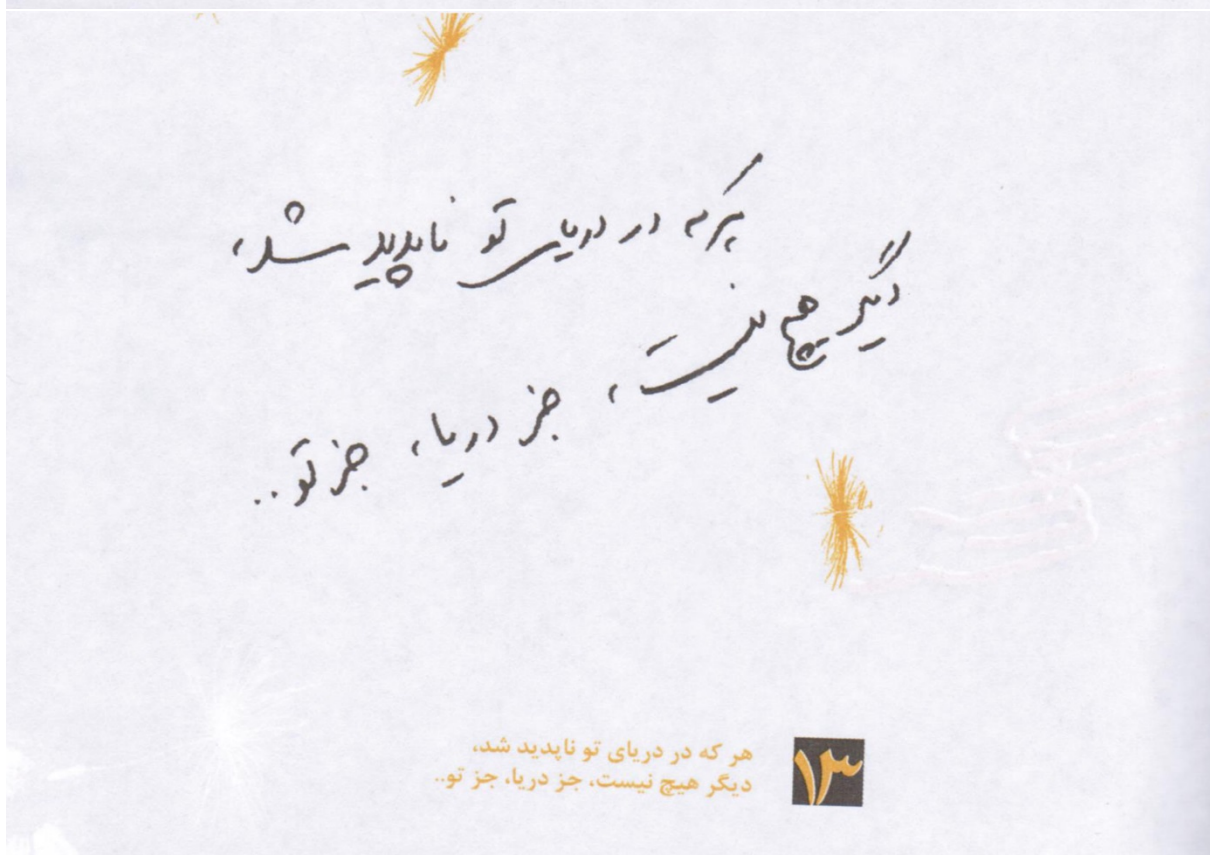 هر که در دریای تو ناپدید شد،
دیگر هیچ نیست، جز دریا، جز تو..
۱۳
هر که در دریای تو ناپدید شد،
دیگر هیچ نیست، جز دریا، جز تو..